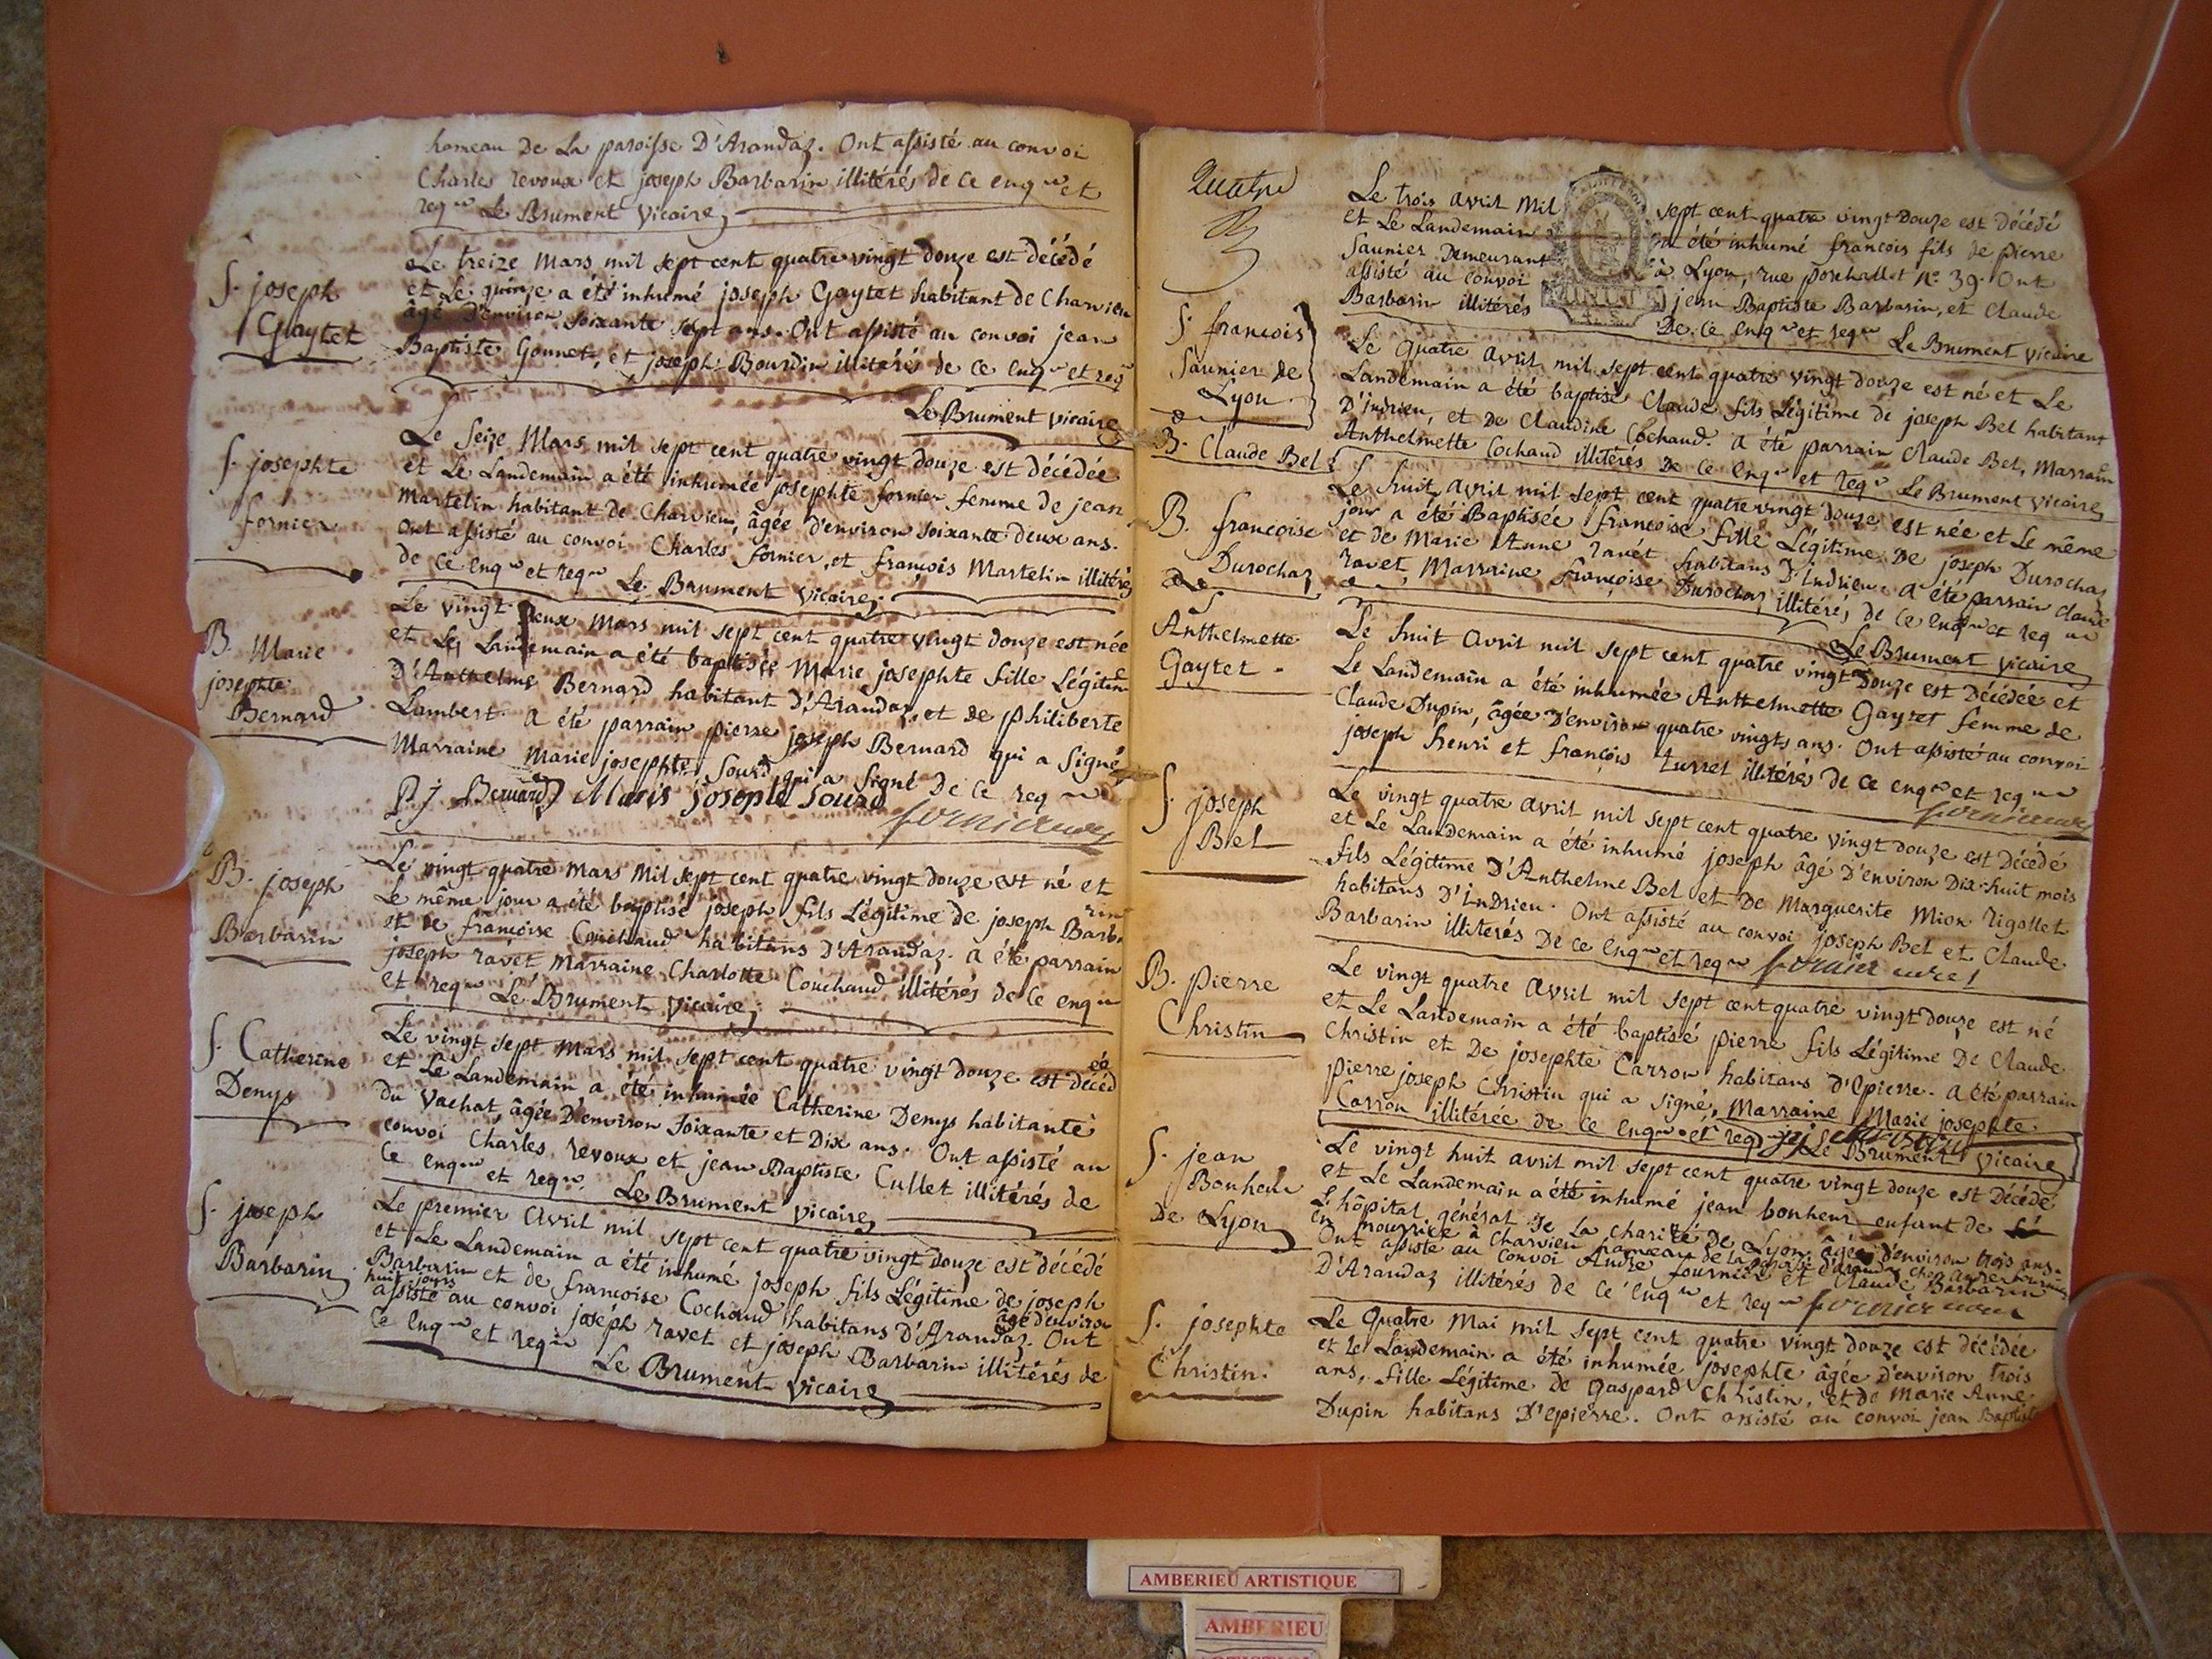 hameau de La paroisse D'Arandaz. Ont assisté au convoi
Charles revoux et joseph Barbarin illitérés de ce enqis et
reqis Le Brument Vicaire
S. joseph
Gaytet
Le treize Mars mil sept cent quatre vingt douze est décédé
et Le quinze a été inhumé joseph Gaytet habitant de Charvieu
âgé D'environ soixante sept ans. Ont assisté au convoi jean
Baptiste Gonnet, et joseph Bourdin illitérés de ce enqis et reqis
Le Brument vicaire
S. josephte
fornier
Le Seize Mars mil sept cent quatre vingt douze est décédée
et Le Landemain a été inhumée josephte fornier femme de jean
Martelin habitant de Charvieu, âgée d'environ soixante deux ans.
Ont assisté au convoi Charles fornier, et françois Martelin illitérés
de ce enqis et reqis Le Brument Vicaire
B. Marie
josephte
Bernard
Le vingt Deux Mars mil sept cent quatre vingt douze est née
et Le Landemain a été baptisée Marie josephte fille Légitime
D'Anthelme Bernard habitant d'Arandaz, et de philiberte
Lambert. a été parrain pierre joseph Bernard qui a Signé
Marraine Marie josephte Sourd qui a Signé De Ce reqis
P j Bernard Marie josephte Sourd
fornier curé
B. joseph
Barbarin
Le vingt quatre Mars Mil sept cent quatre vingt douze est né et
Le même jour a été baptisé joseph fils Légitime de joseph Barbarin
et de françoise Couchaud habitans D'Arandaz. a été parrain
joseph ravet Marraine Charlotte Couchaud illitérés de Ce enqis
et reqis Le Brument Vicaire
S. Catherine
Denys
Le vingt sept Mars mil sept cent quatre vingt douze est décédée
et Le Landemain a été inhumée Catherine Denys habitante
du Vachat, âgée D'environ Soixante et Dix ans. Ont assisté au
convoi Charles revoux et jean Baptiste Cullet illitérés de
Ce enqis et reqis. Le Brument Vicaire
S. joseph
Barbarin
Le premier Avril mil sept cent quatre vingt douze est décédé
et Le Landemain a été inhumé joseph fils Légitime de joseph
Barbarin et de francoise Cochaud habitans D'Arandaz. âgé d'environ
huit jours Ont
assisté au convoi joséph ravet et joseph Barbarin illitérés de
Ce enqis et reqis Le Brument Vicaire
Quatre
S. francois
Saunier de
Lyon
Le trois avril Mil sept cent quatre vingt Douze est décédé
et Le Landemain a été inhumé francois fils de pierre
Saunier Demeurant à Lyon, rue porchallet No. 39. Ont
assisté au convoi jean Baptiste Barbarin, et Claude
Barbarin illitérés De Ce enqis et reqis Le Brument vicaire
B. Claude Bel
Le Quatre avril mil sept cent quatre vingt douze est né et Le
Landemain a été baptisé Claude fils Légitime de joseph Bel habitant
D'indrieu, et de Claudine Cochaud. a été parrain Claude Bel, Marraine
Anthelmette Cochaud illitérés De Ce enqis et reqis Le Brument vicaire
B. françoise
Durochaz
Le huit avril mil sept cent quatre vingt douze est née et Le même
jour a été Baptisée francoise fille Légitime De joseph Durochaz
et de Marie Anne ravet habitans D'indrieu. a été parrain claude
ravet, Marraine françoise Durochaz illitérés de Ce enqis et reqis
Le Brument vicaire
S
Anthelmette
Gaytet
Le huit avril mil sept cent quatre vingt Douze est Décédée et
Le Landemain a été inhumée Anthelmette Gaytet femme de
Claude Dupin, âgée D'environ quatre vingts ans. Ont assisté au convoi
joseph henri et françois turret illitérés de Ce enqis et reqis
fornier curé
S. joseph
Bel
Le vingt quatre avril mil sept cent quatre vingt douze est Décédé
et Le Landemain a été inhumé joseph âgé D'environ Dix-huit mois
fils Légitime D'Anthelme Bel et De Marguerite Mion rigollet
habitans D'indrieu. Ont assisté au convoi joseph Bel et Claude
Barbarin illitérés De ce enqis et reqis fornier curé
B. pierre
Christin
Le vingt quatre avril mil sept cent quatre vingt douze est né
et Le Landemain a été baptisé pierre fils Légitime De Claude
Christin et De josephte Carron habitans D'Epierre. a été parrain
pierre joseph Christin qui a Signé, Marraine Marie josephte
Carron illitérée de Ce enqis et reqis Le Brument vicaire
S. jean
Bonheur
De Lyon
Le vingt huit avril mil sept cent quatre vingt douze est Décédé
et Le Landemain a été inhumé jean bonheur enfant de
L'hôpital général de La charité de Lyon âgé d'environ trois ans.
en nourrice à Charvieu hameau de la paroisse d'arandaz chez andre fournier
Ont assisté au convoi Andre fournier et Claude Barbarin
D'Arandaz illitérés de Ce enqis et reqis fornier curé
S. josephte
Christin.
Le Quatre Mai mil sept cent quatre vingt douze est décédée
et Le Landemain a été inhumée josephte âgée d'environ trois
ans, fille Légitime de gaspard Christin, et de Marie Anne
Dupin habitans D'epierre. Ont assisté au convoi jean Baptiste
AMBERIEU ARTISTIQUE
AMBERIEU